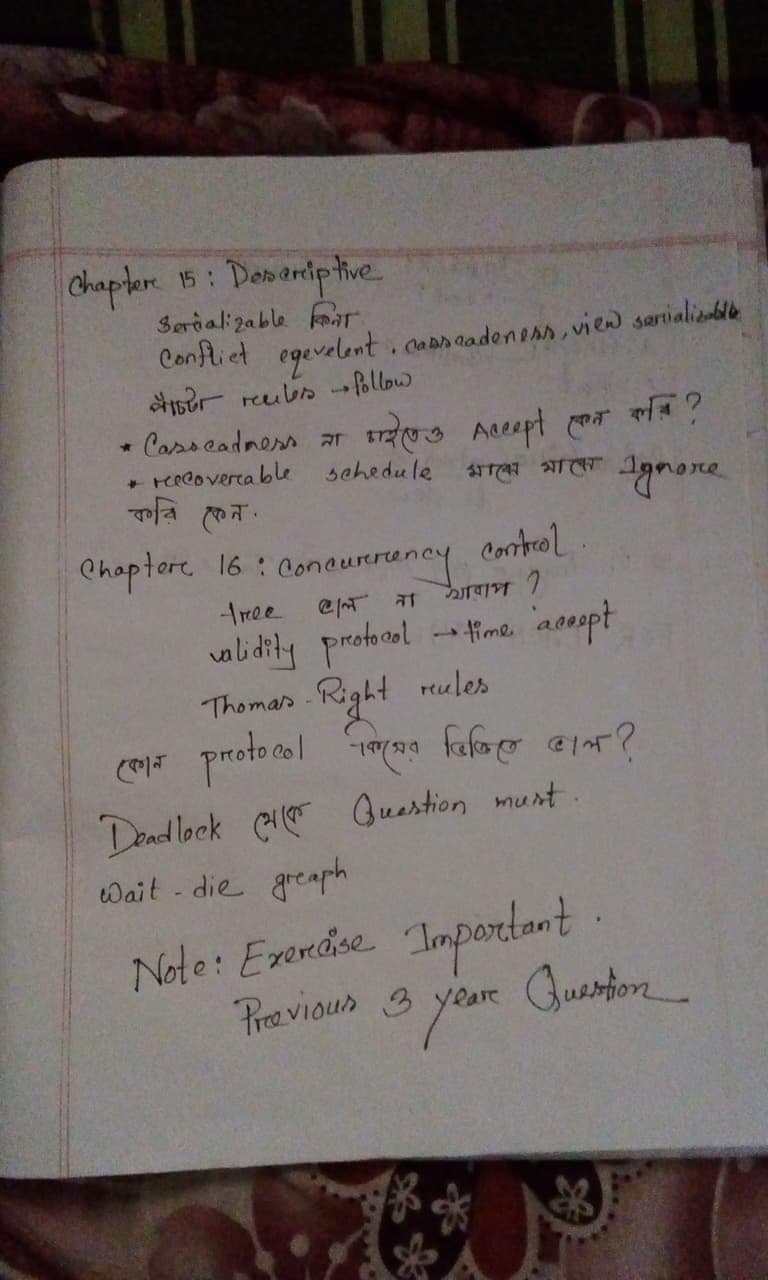 Chapter 15: Descriptive
Serializable কিনা
Conflict eqevelent, casscadeness, view serializable
পাঁচটা rules → follow
* Casscadness না চাইলেও Accept কেন করি?
* recoverable schedule মাঝে মাঝে Ignore
করি কেন.
Chapter 16: Concurrency control.
tree ভাল না খারাপ?
validity protocol → time accept
Thomas-Right rules
কোন protocol কিসের ভিত্তিতে ভাল?
Deadlock থেকে Question must.
Wait-die graph
Note: Exercise Important.
Previous 3 year Question